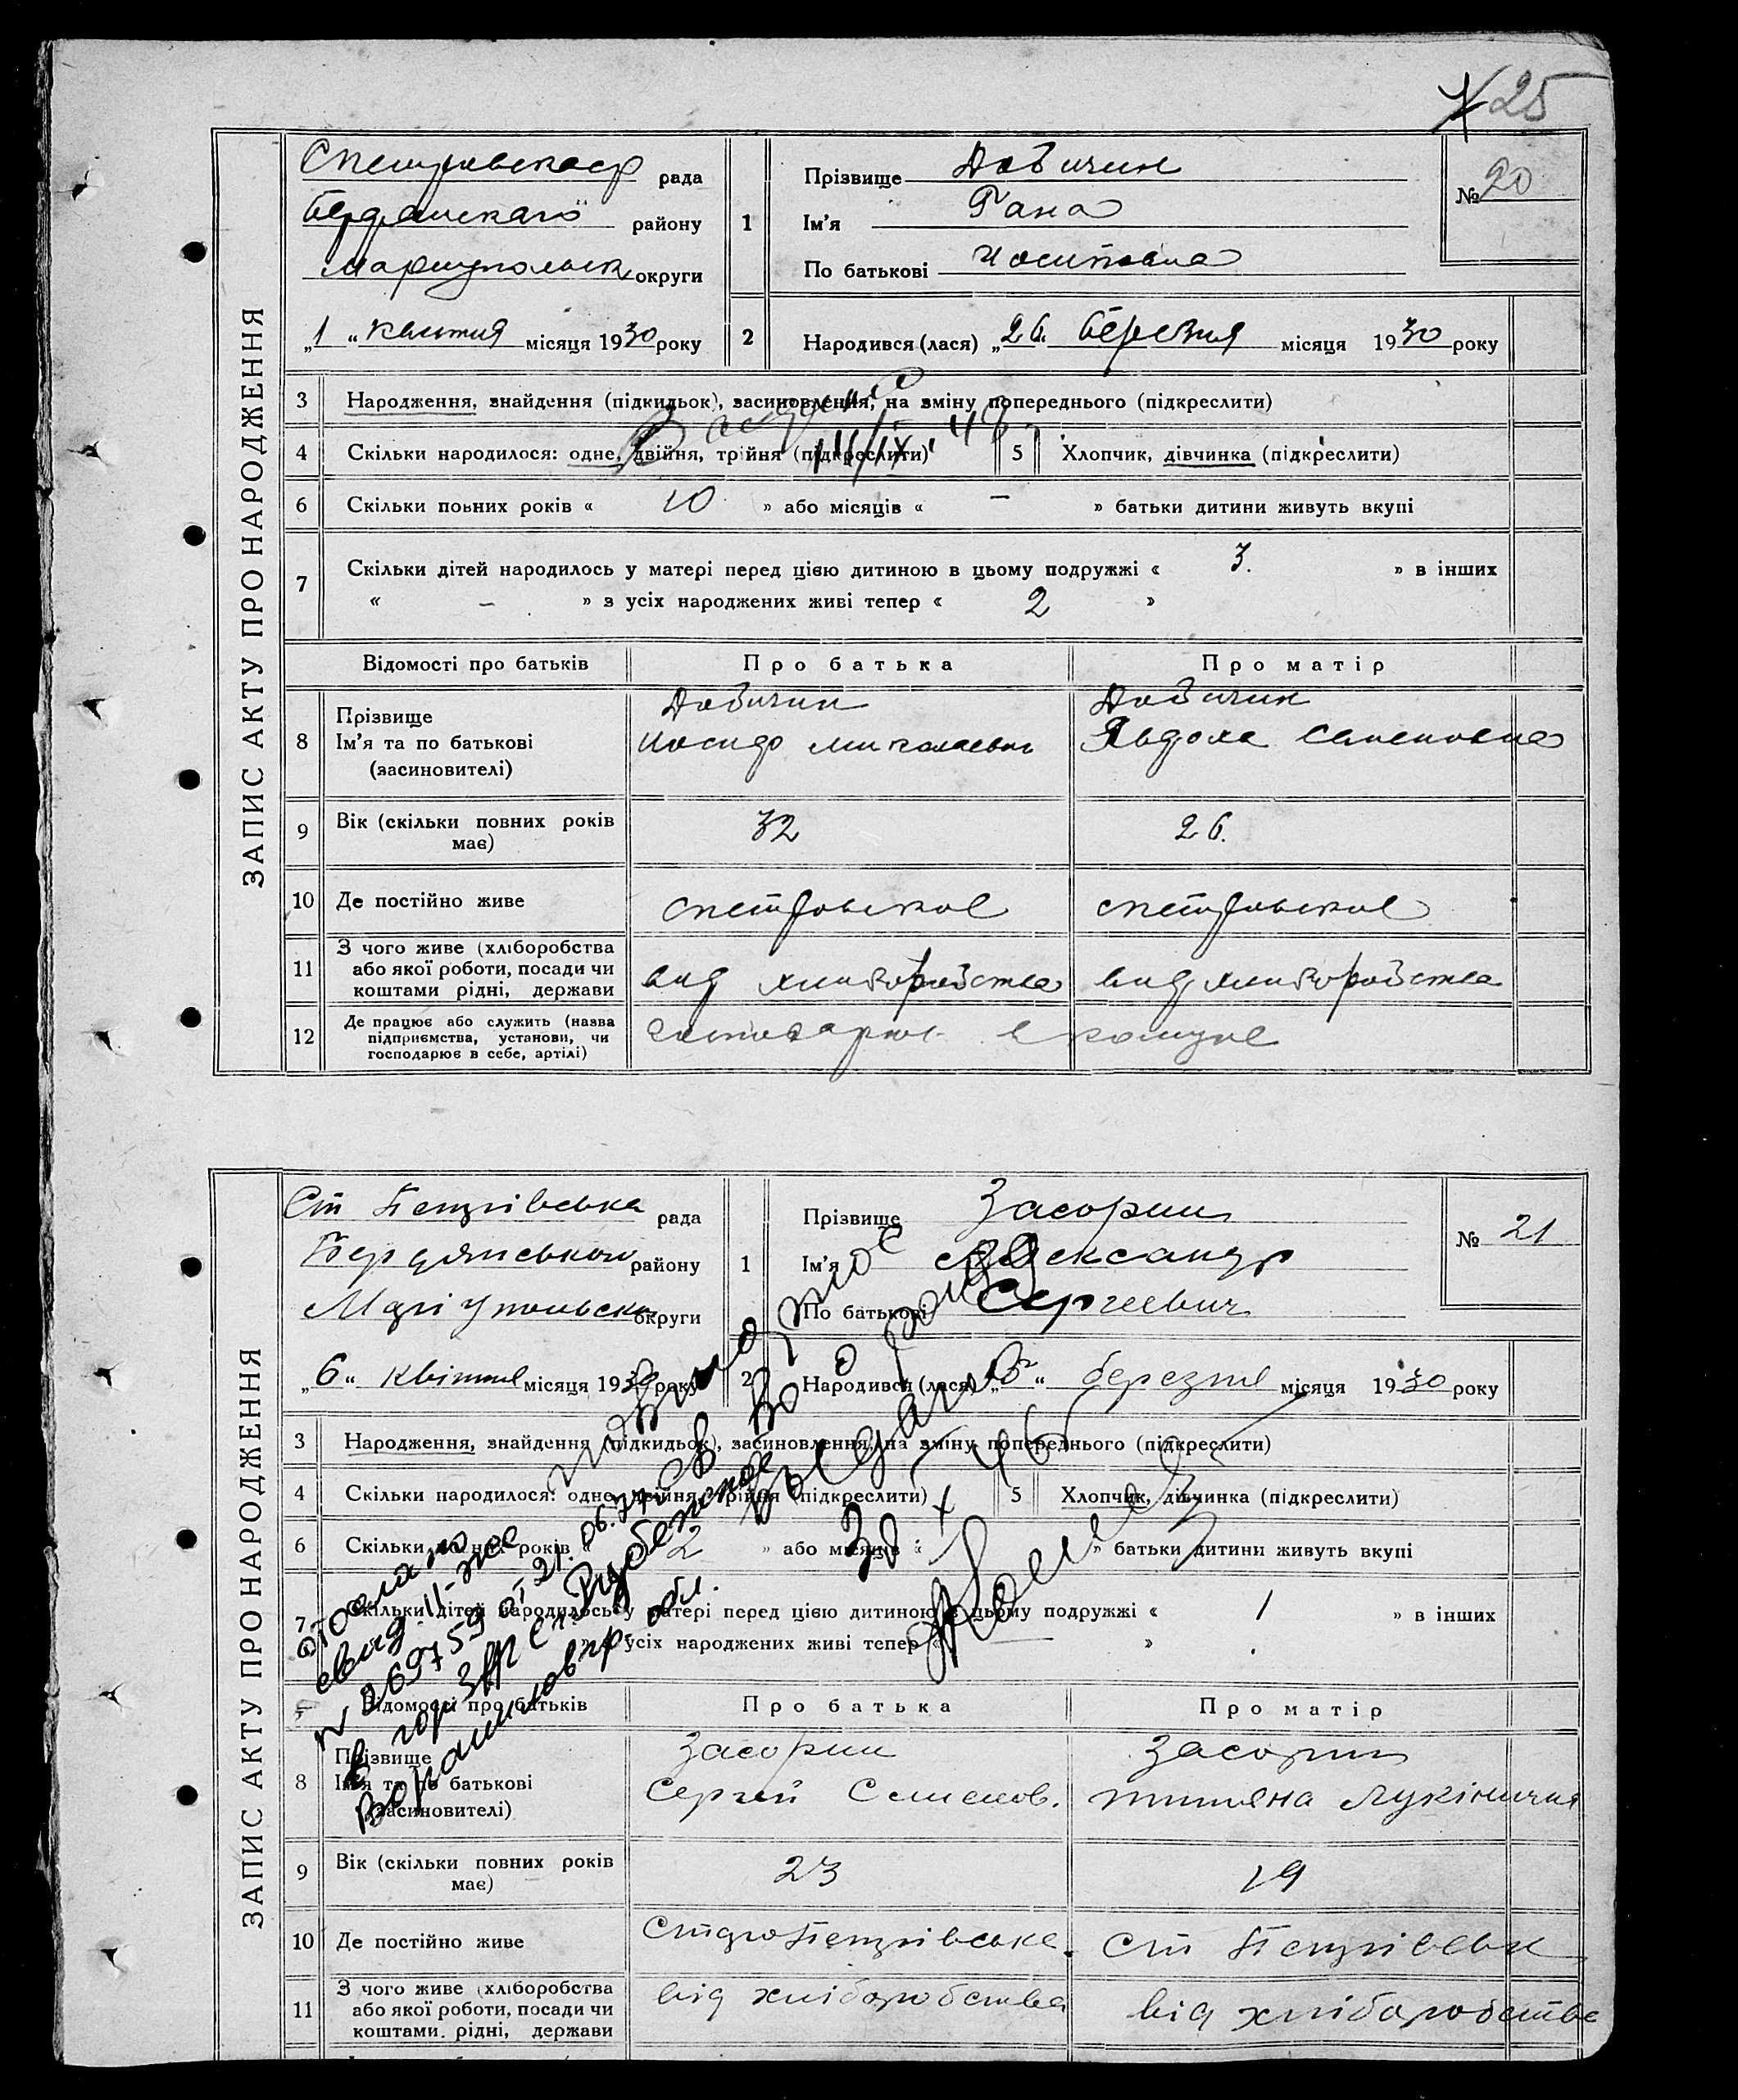 25
ЗАПИС АКТУ ПРО НАРОДЖЕННЯ
рада
району
округи
„1“ квитня місяця 1930 року
1
Прізвище Добичин
Ім'я Гана
По батькові Иосиповна
№ 20
2 Народився (лася) „26. березня місяця 1930 року
3 Народження, знайдення (підкидьок), засиновлення, на зміну попереднього (підкреслити)
4 Скільки народилося: одне, двійня, трійня (підкреслити)
5 Хлопчик, дівчинка (підкреслити)
6 Скільки повних років « 10 » або місяців « – » батьки дитини живуть вкупі
7 Скільки дітей народилось у матері перед цією дитиною в цьому подружжі « 3. » в інших
« – » з усіх народжених живі тепер « 2 »
Відомості про батьків
Про батька
Про матір
8 Прізвище
Ім'я та по батькові
(засиновителі)
Добичин
Иосиф Миколаевич
Добичин
Явдоха Семеновна
9 Вік (скільки повних років
має)
32
26.
10 Де постійно живе
спетровское
спетровское
11 З чого живе (хліборобства
або якої роботи, посади чи
коштами рідні, держави
вид хлиборобства
вид хлиборобства
12 Де працює або служить (назва
підприємства, установи, чи
господарює в себе, артілі)
в комуне
ЗАПИС АКТУ ПРО НАРОДЖЕННЯ
Ст Петрівська рада
Бердянського району
Маріупольська округи
„6“ квітня місяця 1930 року
1
Прізвище Засорин
Ім'я Александр
По батькові Сергеевич
№ 21
2 Народився (лася) березня місяця 1930 року
3 Народження, знайдення (підкидьок), засиновлення, на зміну попереднього (підкреслити)
4 Скільки народилося: одне, двійня, трійня (підкреслити)
5 Хлопчик, дівчинка (підкреслити)
6 Скільки повних років « 2 » або місяців « » батьки дитини живуть вкупі
7 Скільки дітей народилось у матері перед цією дитиною в цьому подружжі « 1 » в інших
« » з усіх народжених живі тепер « — »
Повторное
выдано
30 X 46
свид. II-
№ 269759 от 21.06.
в гор ЗАГС г. Рубежное
Ворошиловгр. обл.
Відомості про батьків
Про батька
Про матір
8 Прізвище
Ім'я та по батькові
(засиновителі)
Засорин
Сергей Семенов.
Засорин
Титяна Лукінична
9 Вік (скільки повних років
має)
23
19
10 Де постійно живе
СтароПетрівське.
Ст Петрівськ
11 З чого живе (хліборобства
або якої роботи, посади чи
коштами рідні, держави
від хліборобства
від хліборобства